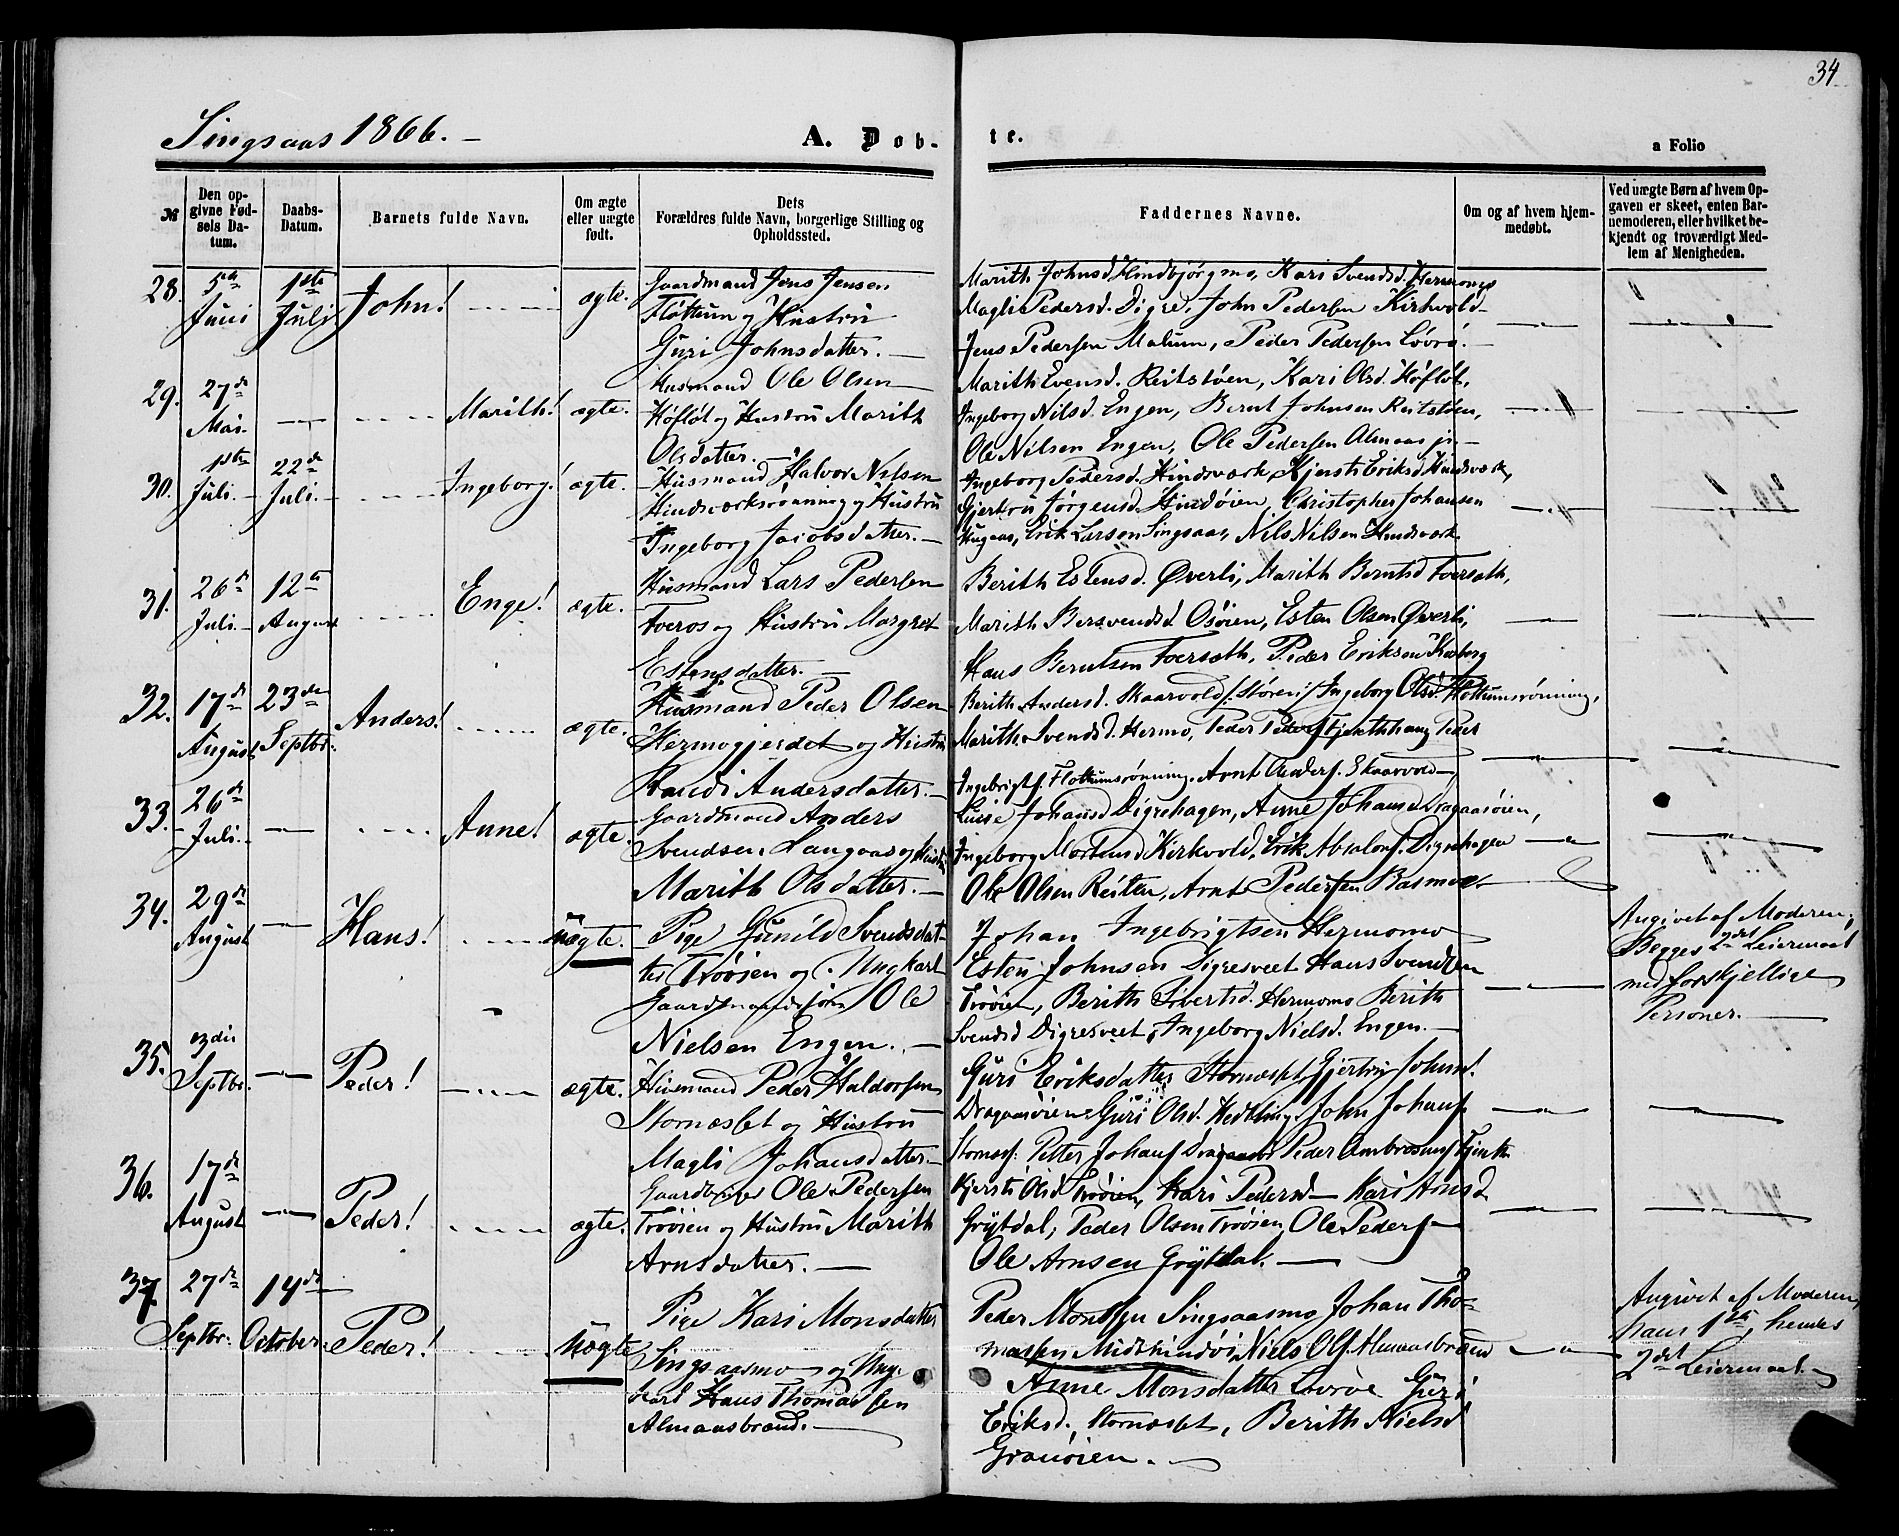 34
Singsaas 1866. -
A. Døb-
te.
a Folio
№
Den op-
givne Fød-
sels Da-
tum.
Daabs-
Datum.
Barnets fulde Navn.
Om ægte
eller uægte
født.
Dets
Forældres fulde Navn, borgerlige Stilling og
Opholdssted.
Faddernes Navne.
Om og af hvem hjem-
medøbt.
Ved uægte Børn af hvem Op-
gaven er skeet, enten Bar-
nemoderen, eller hvilket be-
kjendt og troværdigt Med-
lem af Menigheden.
28. 5te Juni
1ste Juli
John!
ægte.
Gaardmand Jens Jensen
Fløttum og Hustru
Guri Johnsdatter.
Marith Johnsd. Hindbjørgmo, Kari Svendsd. Hermomo
Magli Pedersd. Digre, John Pedersen Kirkvold
Jens Pedersen Malum, Peder Pedersen Løvrø.
29. 27de Mai.
Marith!
ægte.
Husmand Ole Olsen
Høfløt og Hustru Marith
Olsdatter.
Marith Evensd. Reitstøen, Kari Olsd. Høfløt,
Ingeborg Nilsd. Engen, Bernt Johnsen Reitstøen,
Ole Nilsen Engen, Ole Pedersen Almaas jr.
30. 1ste Juli.
22de Juli.
Ingeborg!
ægte.
Husmand Halvor Nilsen
Hindsværksrønning og Hustru
Ingeborg Jacobsdatter.
Ingeborg Pedersd. Hindsværk, Kjersti Eriksd. Hindsværk,
Gjertru Jørgensd. Hindøien, Christopher Johansen
Hugaas, Erik Larsen Singsaas, Nils Nilsen Hindsværk
31. 26de Juli.
12te August
Enge!
ægte.
Husmand Lars Pedersen
Foeros og Hustru Margret
Estensdatter.
Berith Estensd. Øverli, Marith Berntsd. Foersæth,
Marith Bersvendsd. Osøien, Esten Olsen Øverli,
Hans Berntsen Foersæth, Peder Eriksen
32. 17de August
23de Septbr.
Anders!
ægte.
Husmand Peder Olsen
Hermogjerdet og Hustru
Randi Andersdatter.
Berith Andersd. Skaarvold /:Støren:/ Ingeborg Olsd. Fløttumsrønning,
Marith Svendsd. Hermo, Peder Peders. Peder
Ingebrigts. Fløttumsrønning, Arnt Anders. Skaarvold
33. 26de Juli.
Anne!
ægte.
Gaardmand Anders
Svendsen Langaas og Hustru
Marith Olsdatter.
Lusse Johansd Digrehagen, Anne Johansd. Dragaasøien,
Ingeborg Mortensd Kirkvold, Erik Absalons. Digrehagen
Ole Olsen Reiten, Arnt Pedersen Basmoe.
34. 29de August
Hans!
uægte.
Pige Gunild Svendsdat-
ter Trøøien og Ungkarl
Gaardmandssøn Ole
Nielsen Engen.
Johan Ingebrigtsen Hermomo
Esten Johnsen Digresveet Hans Svendsen
Trøøien, Berith Sivertsd. Hermomo Berith
Svendsd Digresveet, Ingeborg Nielsd. Engen.
Angivet af Moderen,
Begges 2det Leiermaal
med forskjellige
Personer.
35. 3die Septbr.
Peder!
ægte.
Husmand Peder Haldorsen
Stornæset og Hustru
Magli Johansdatter.
Guri Eriksdatter Stornæset, Gjertru Johnsd.
Dragaasøien, Guri Olsd. John Johans.
Stornæs: Petter Johans Dragaasøi Peder Ambrosius
36. 17de August
Peder!
ægte.
Gaardbruger Ole Pedersen
Trøøien og Hustru Marith
Arnsdatter.
Kjersti Olsd Trøøien, Kari Pedersd Kari Arnsd
Grytdal, Peder Olsen Trøøien, Ole Peders
Ole Arnsen Grytdal.
37 27de Septbr.
14de October
Peder!
uægte
Pige Kari Monsdatter
Singsaasmo og Ung-
karl Hans Thomassen
Almaasbrænd.
Peder Monssen Singsaasmo Johan Tho-
massen Midthindøi, Niels Ols Almaasbrænd
Anne Monsdatter Løvrøe Guri
Eriksd. Stornæset, Berith Nielsd
Granøien.
Angivet af Moderen,
hans 1ste, hendes
2det Leiermaal.